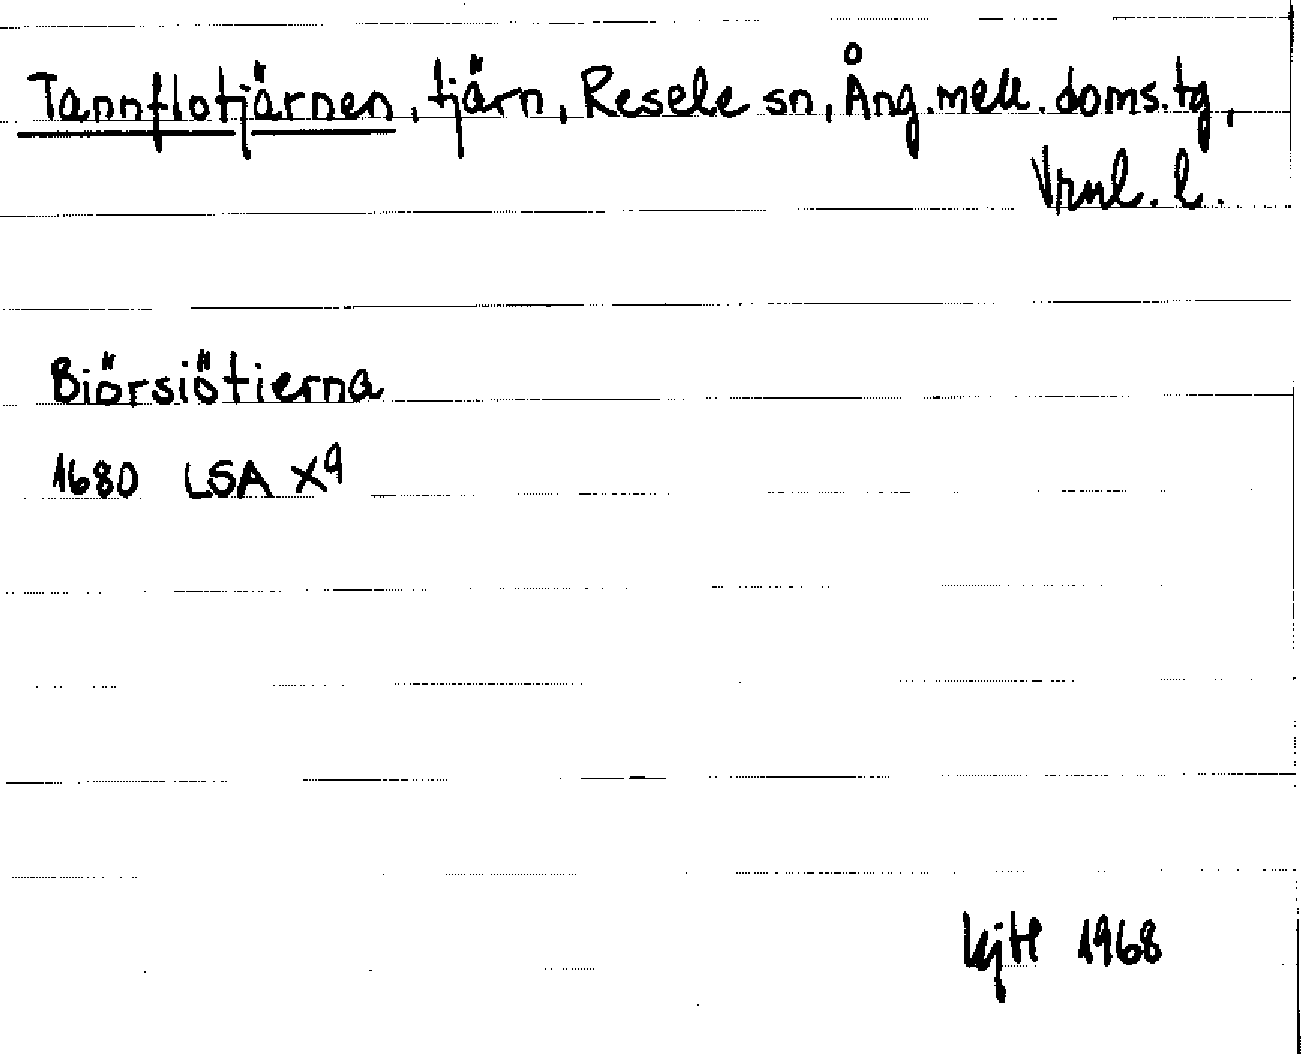 Tannflotjärnen, tjärn, Resele sn, Ång. mell. doms. tg,
Vrnl. l.
Biörsiötierna
1680 LSA X9
KjH 1968